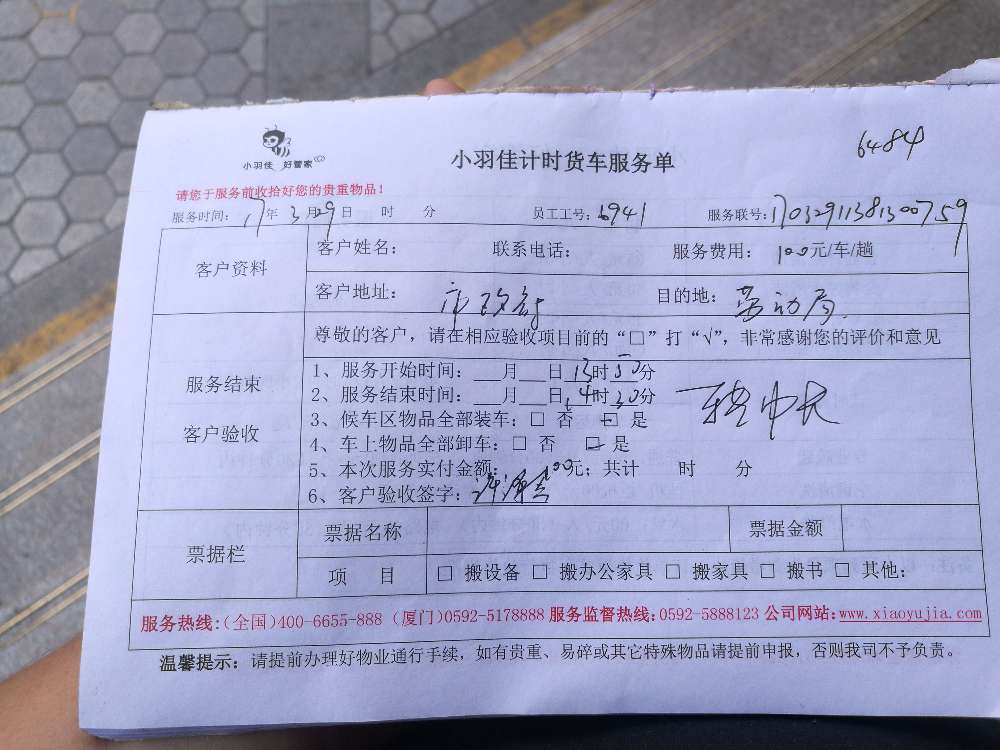 小羽佳 好管家
小羽佳计时货车服务单
6484
请您于服务前收拾好您的贵重物品!
服务时间: 17年 3月29日 时 分 员工工号: 6941 服务联号: 17032911381300759
客户资料
客户姓名: 联系电话: 服务费用: 100元/车/趟
客户地址: 市政府 目的地: 劳动局
尊敬的客户，请在相应验收项目前的“□”打“√”，非常感谢您的评价和意见
服务结束
客户验收
1、服务开始时间: ___月___日13时50分
2、服务结束时间: ___月___日14时30分
3、候车区物品全部装车: □ 否 □ 是
4、车上物品全部卸车: □ 否 □ 是
5、本次服务实付金额: 100元; 共计 时 分
6、客户验收签字:
票据栏
票据名称 票据金额
项 目 □ 搬设备 □ 搬办公家具 □ 搬家具 □ 搬书 □ 其他:
服务热线:(全国)400-6655-888 (厦门)0592-5178888 服务监督热线:0592-5888123 公司网站:www.xiaoyujia.com
温馨提示: 请提前办理好物业通行手续，如有贵重、易碎或其它特殊物品请提前申报，否则我司不予负责。